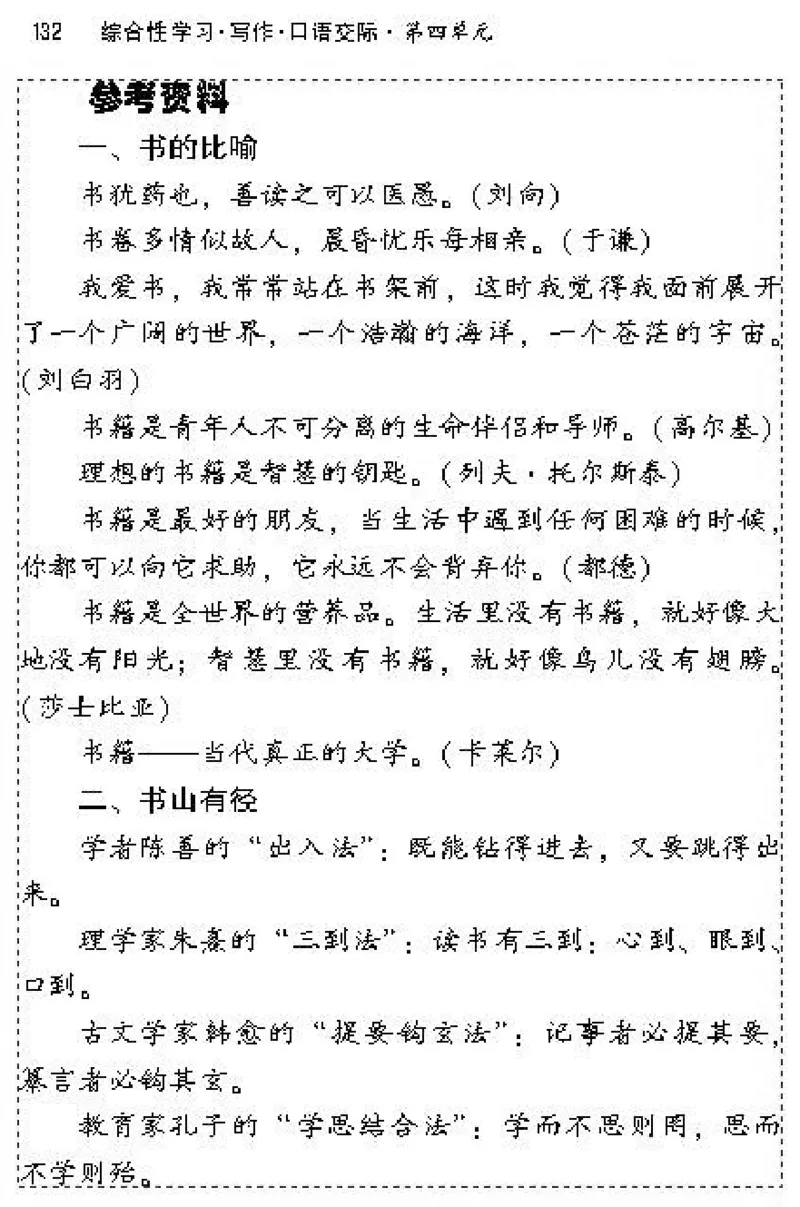 132 综合性学习·写作·口语交际·第四单元
参考资料
一、书的比喻
书犹药也，善读之可以医愚。(刘向)
书卷多情似故人，晨昏忧乐每相亲。(于谦)
我爱书，我常常站在书架前，这时我觉得我面前展开
了一个广阔的世界，一个浩瀚的海洋，一个苍茫的宇宙。
(刘白羽)
书籍是青年人不可分离的生命伴侣和导师。(高尔基)
理想的书籍是智慧的钥匙。(列夫·托尔斯泰)
书籍是最好的朋友，当生活中遇到任何困难的时候，
你都可以向它求助，它永远不会背弃你。(都德)
书籍是全世界的营养品。生活里没有书籍，就好像大
地没有阳光；智慧里没有书籍，就好像鸟儿没有翅膀。
(莎士比亚)
书籍——当代真正的大学。(卡莱尔)
二、书山有径
学者陈善的“出入法”：既能钻得进去，又要跳得出
来。
理学家朱熹的“三到法”：读书有三到：心到、眼到、
口到。
古文学家韩愈的“提要钩玄法”：记事者必提其要，
纂言者必钩其玄。
教育家孔子的“学思结合法”：学而不思则罔，思而
不学则殆。